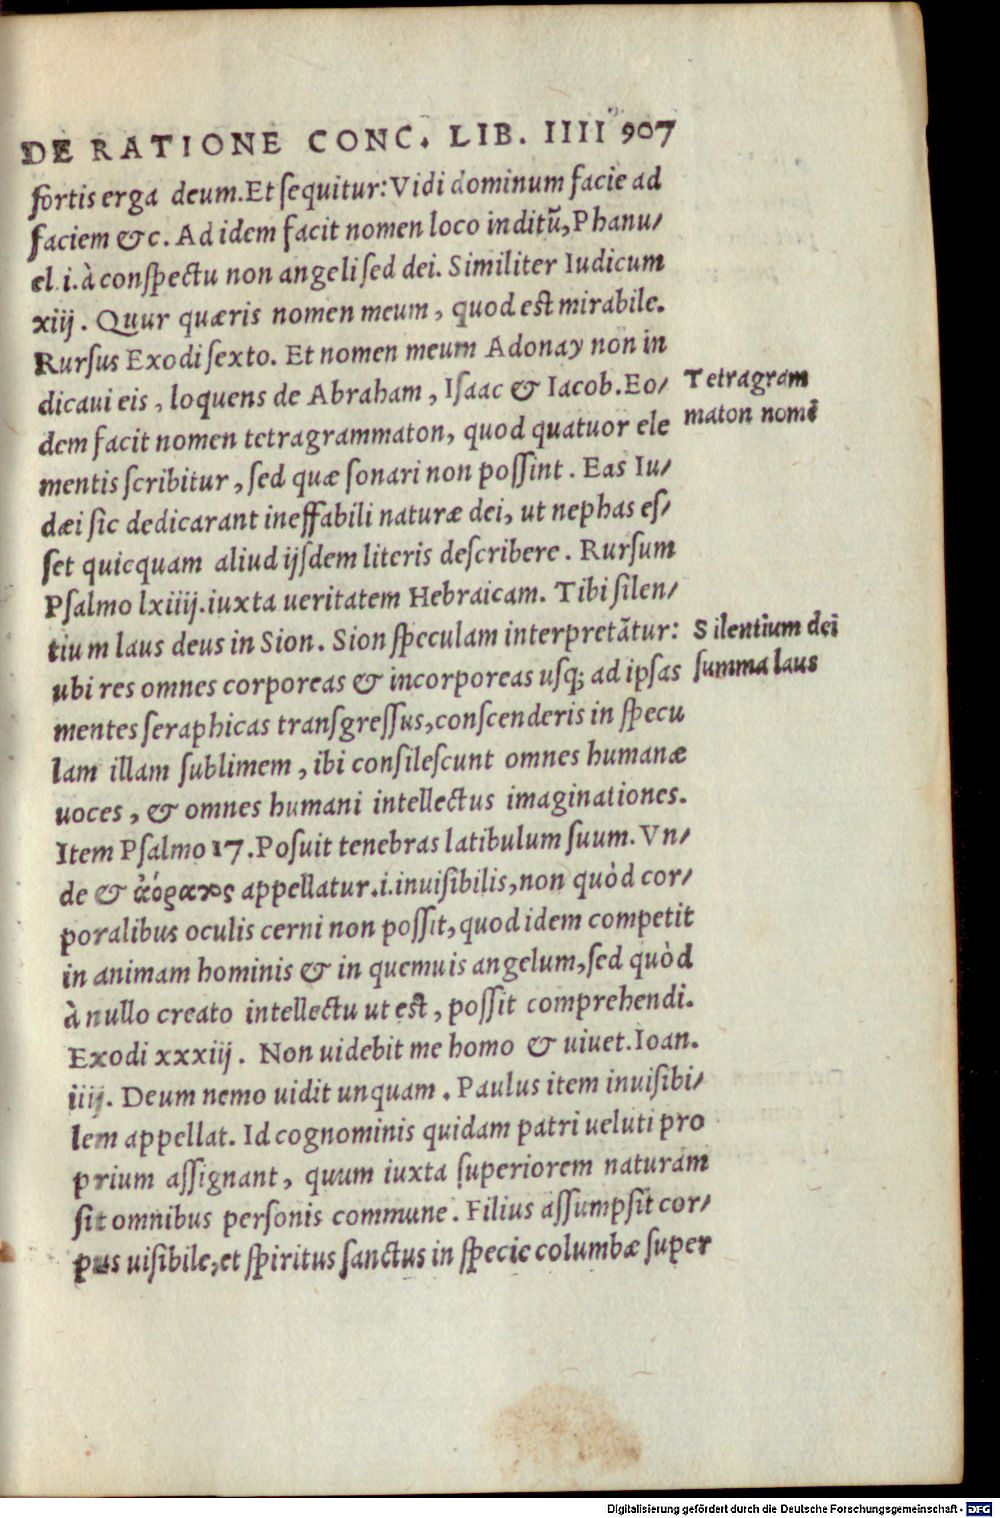 DE RATIONE CONC. LIB. IIII 907
fortis erga deum. Et sequitur: Vidi dominum facie ad
faciem &c. Ad idem facit nomen loco inditū, Phanu/
el .i. à conspectu non angeli sed dei. Similiter Iudicum
xiij. Quur quæris nomen meum, quod est mirabile.
Rursus Exodi sexto. Et nomen meum Adonay non in
dicaui eis, loquens de Abraham, Isaac & Iacob. Eo/
Tetragram
dem facit nomen tetragrammaton, quod quatuor ele
maton nomē
mentis scribitur, sed quæ sonari non possint. Eas Iu/
dæi sic dedicarant ineffabili naturæ dei, ut nephas es/
set quicquam aliud ijsdem literis describere. Rursum
Psalmo lxiiij. iuxta ueritatem Hebraicam. Tibi silen/
tium laus deus in Sion. Sion speculam interpretātur:
Silentium dei
ubi res omnes corporeas & incorporeas usq; ad ipsas
summa laus
mentes seraphicas transgressus, conscenderis in specu
lam illam sublimem, ibi consilescunt omnes humanæ
uoces, & omnes humani intellectus imaginationes.
Item Psalmo 17. Posuit tenebras latibulum suum. Vn/
de & ἀόρατος appellatur .i. inuisibilis, non quòd cor/
poralibus oculis cerni non possit, quod idem competit
in animam hominis & in quemuis angelum, sed quòd
à nullo creato intellectu ut est, possit comprehendi.
Exodi xxxiij. Non uidebit me homo & uiuet. Ioan.
iiij. Deum nemo uidit unquam. Paulus item inuisibi/
lem appellat. Id cognominis quidam patri ueluti pro
prium assignant, quum iuxta superiorem naturam
sit omnibus personis commune. Filius assumpsit cor/
pus uisibile, et spiritus sanctus in specie columbæ super
Digitalisierung gefördert durch die Deutsche Forschungsgemeinschaft - DFG